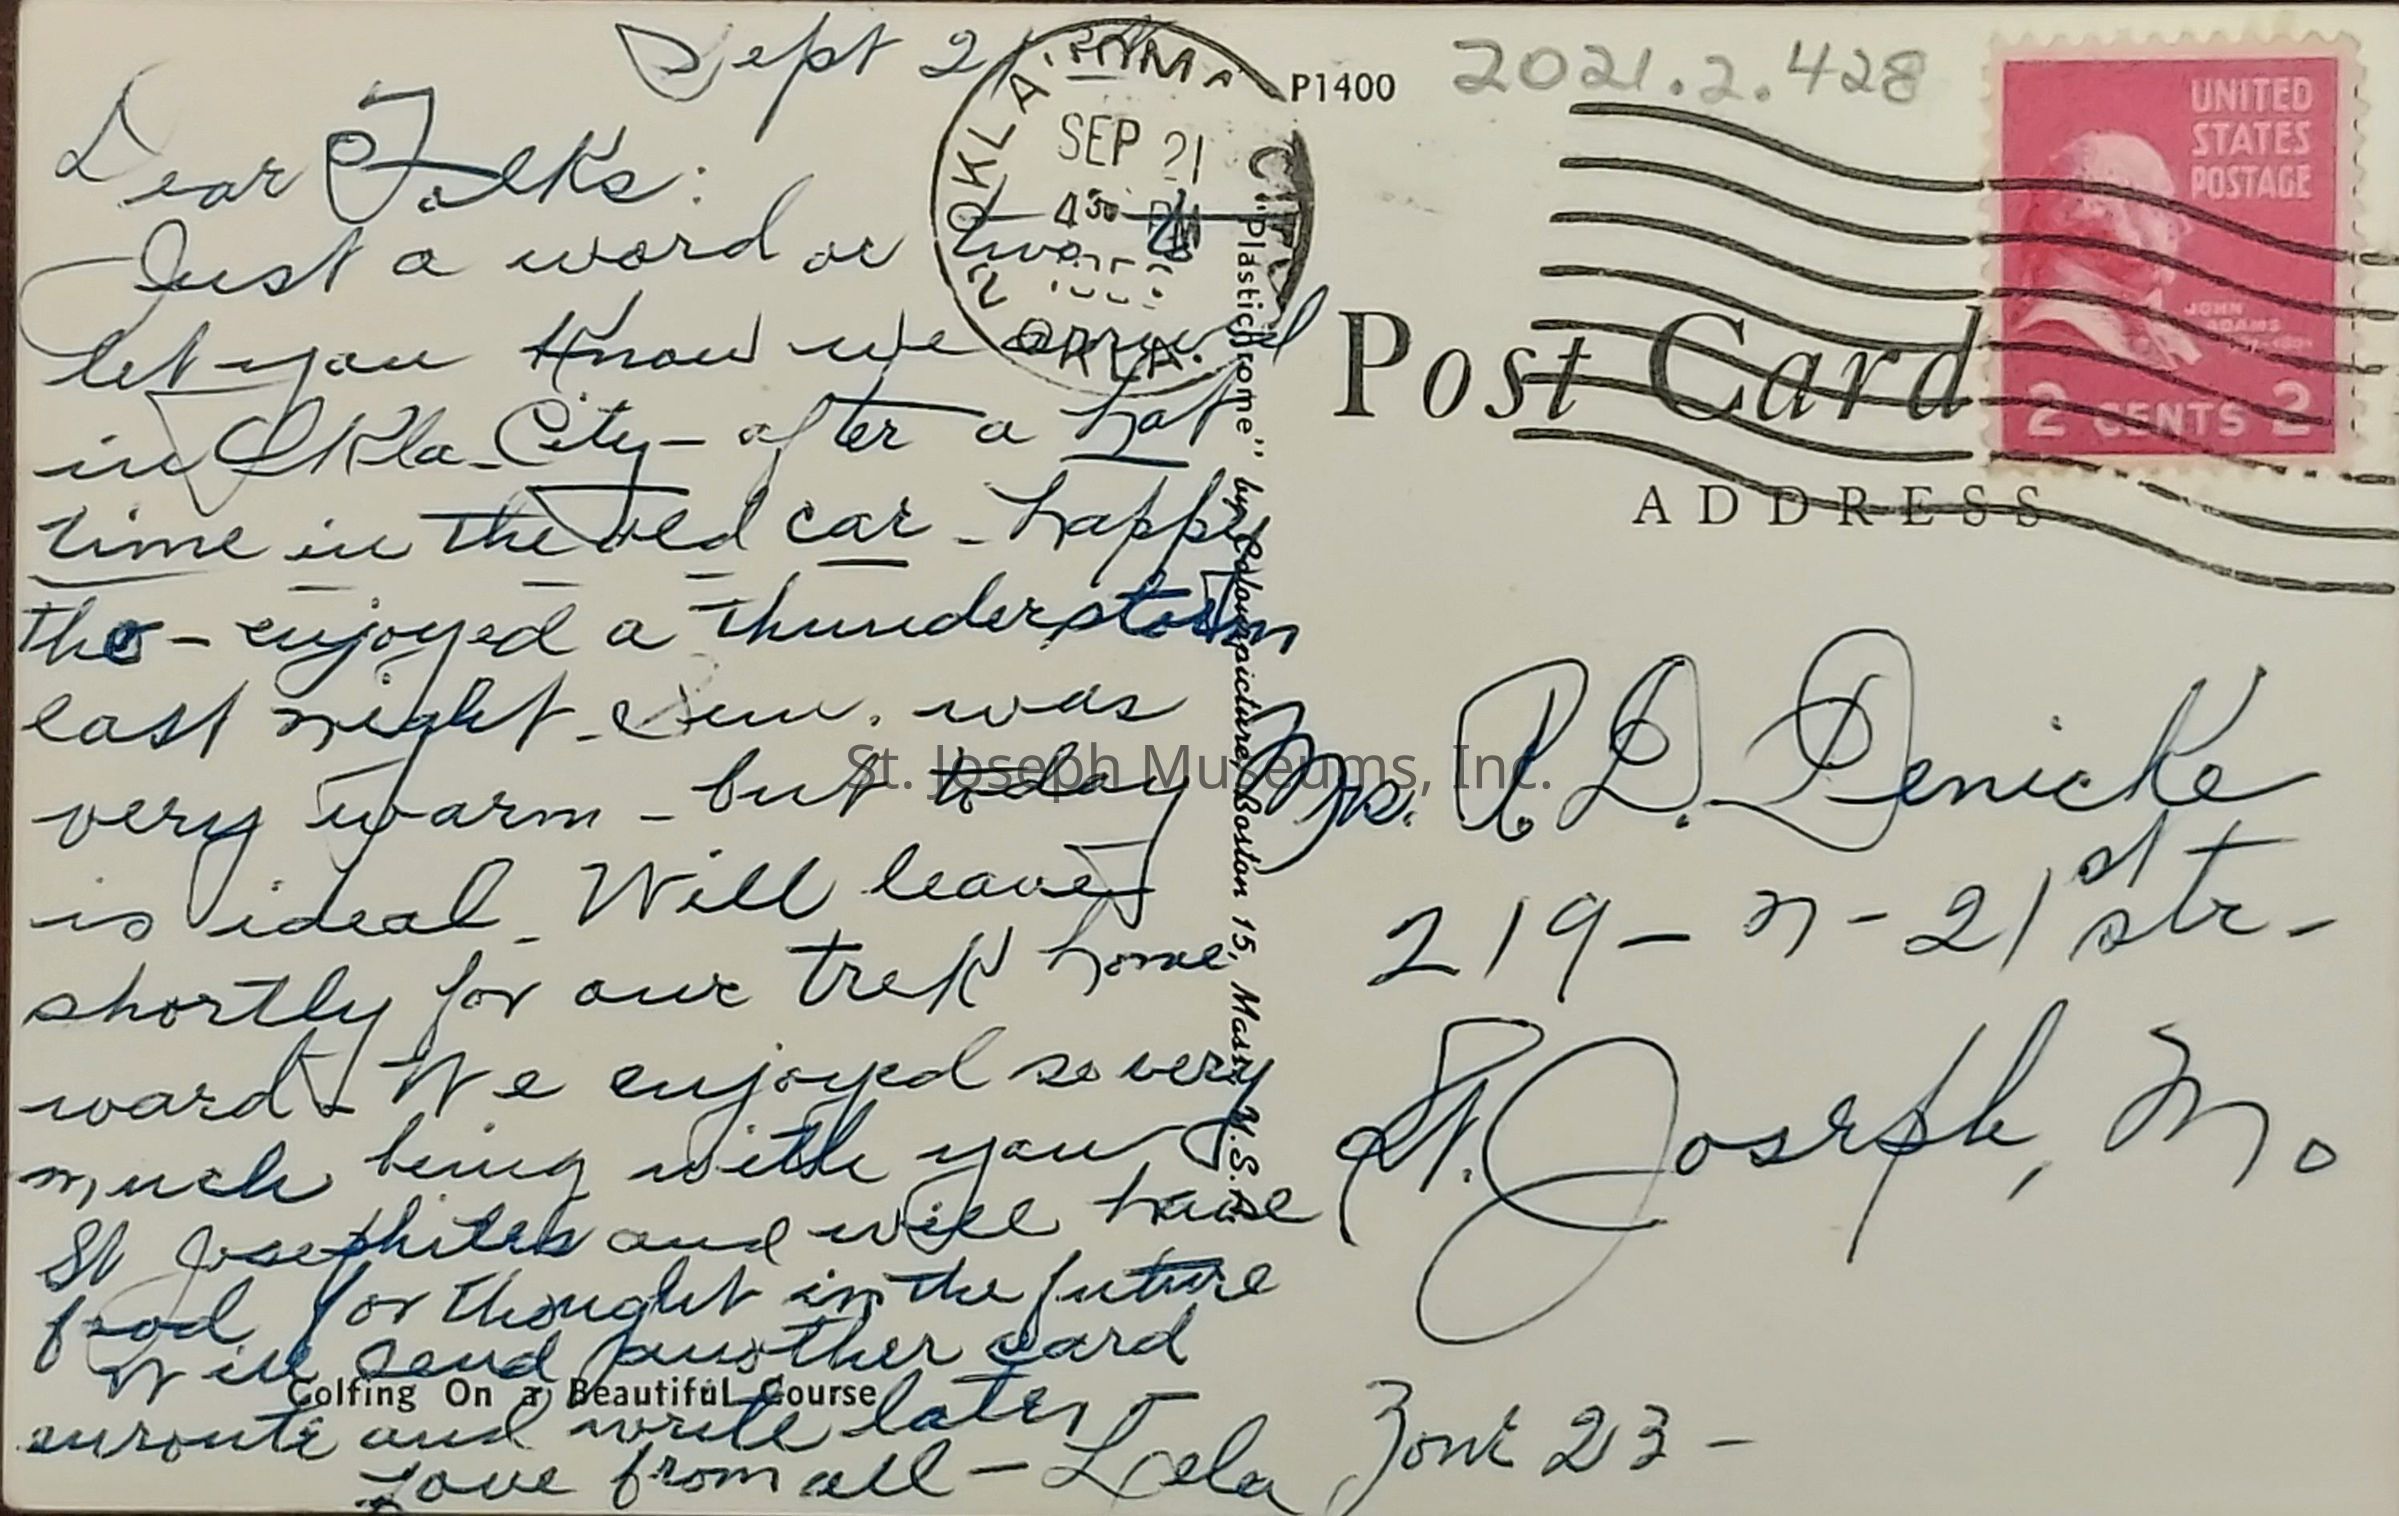 Sept 21
Dear Folks:
Just a word or two to
let you know we arrived
in Okla. City - after a hot
time in the old car - happy
tho - enjoyed a thunderstorm
last night - Sun. was
very warm - but today
is ideal - Will leave
shortly for our trek home
ward - We enjoyed so very
much being with you
St Josephites and will have
food for thought in the future
Will send another card
enroute and write later -
Love from all - Lela
Golfing On a Beautiful Course
OKLAHOMA CITY
SEP 21
4 30 PM
OKLA.
2
P1400
2021.2.428
"Plastichrome" by Colourpicture, Boston 15, Mass., U.S.A.
UNITED
STATES
POSTAGE
JOHN
ADAMS
2 CENTS 2
Post Card
ADDRESS
Mrs. R. D. Denicke
219 - N - 21st Str -
St. Joseph, Mo
Zone 23 -
St. Joseph Museums, Inc.